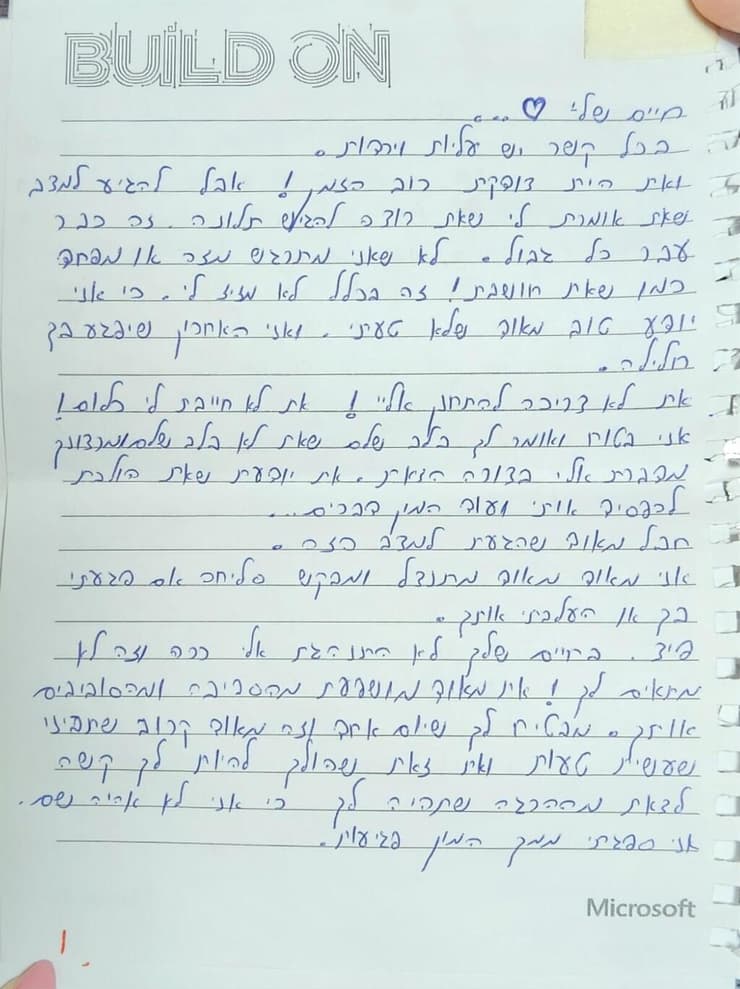 BUILD ON
חיים שלי ♡ ...
בכל קשר יש עליות וירידות.
ואת היית צודקת רוב הזמן! אבל להגיע למצב
שאת אומרת לי שאת רוצה להגיש תלונה. זה כבר
עבר כל גבול. לא שאני מתרגש מזה או מפחד
כמו שאת חושבת! זה בכלל לא מזיז לי. כי אני
יודע טוב מאוד שלא טעיתי. ואני האחרון שיפגע בך
חלילה.
את לא צריכה להתחנן אליי! את לא חייבת לי כלום!
אני בטוח ואומר לך בלב שלם שאת לא בלב שלם ומרצונך
מדברת אלי בצורה הזאת. את יודעת שאת הולכת
להפסיד אותי ועוד המון דברים...
חבל מאוד שהגעת למצב הזה.
אני מאוד מאוד מתנצל ומבקש סליחה אם פגעתי
בך או העלבתי אותך.
בחיים שלך לא התנהגת אלי ככה וזה לא
מתאים לך! את מאוד מושפעת מהסביבה ומהסובבים
אותך. מבטיח לך שיום אחד וזה מאוד קרוב שתביני
שעשית טעות ואת זאת שהולך להיות לך קשה
לצאת מההרגה שתהיה לך כי אני לא אהיה שם.
אני ספגתי ממך המון פגיעות.
Microsoft
1.